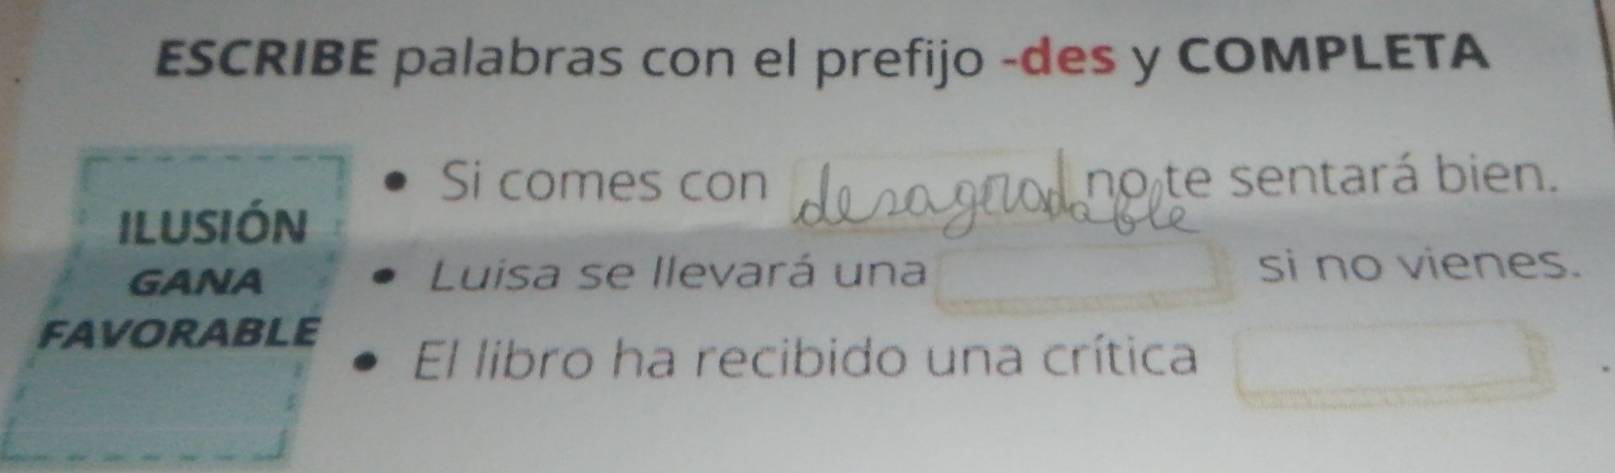 ESCRIBE palabras con el prefijo -des y COMPLETA
ILUSIÓN
GANA
FAVORABLE
• Si comes con desagradable no te sentará bien.
• Luisa se llevará una si no vienes.
• El libro ha recibido una crítica .